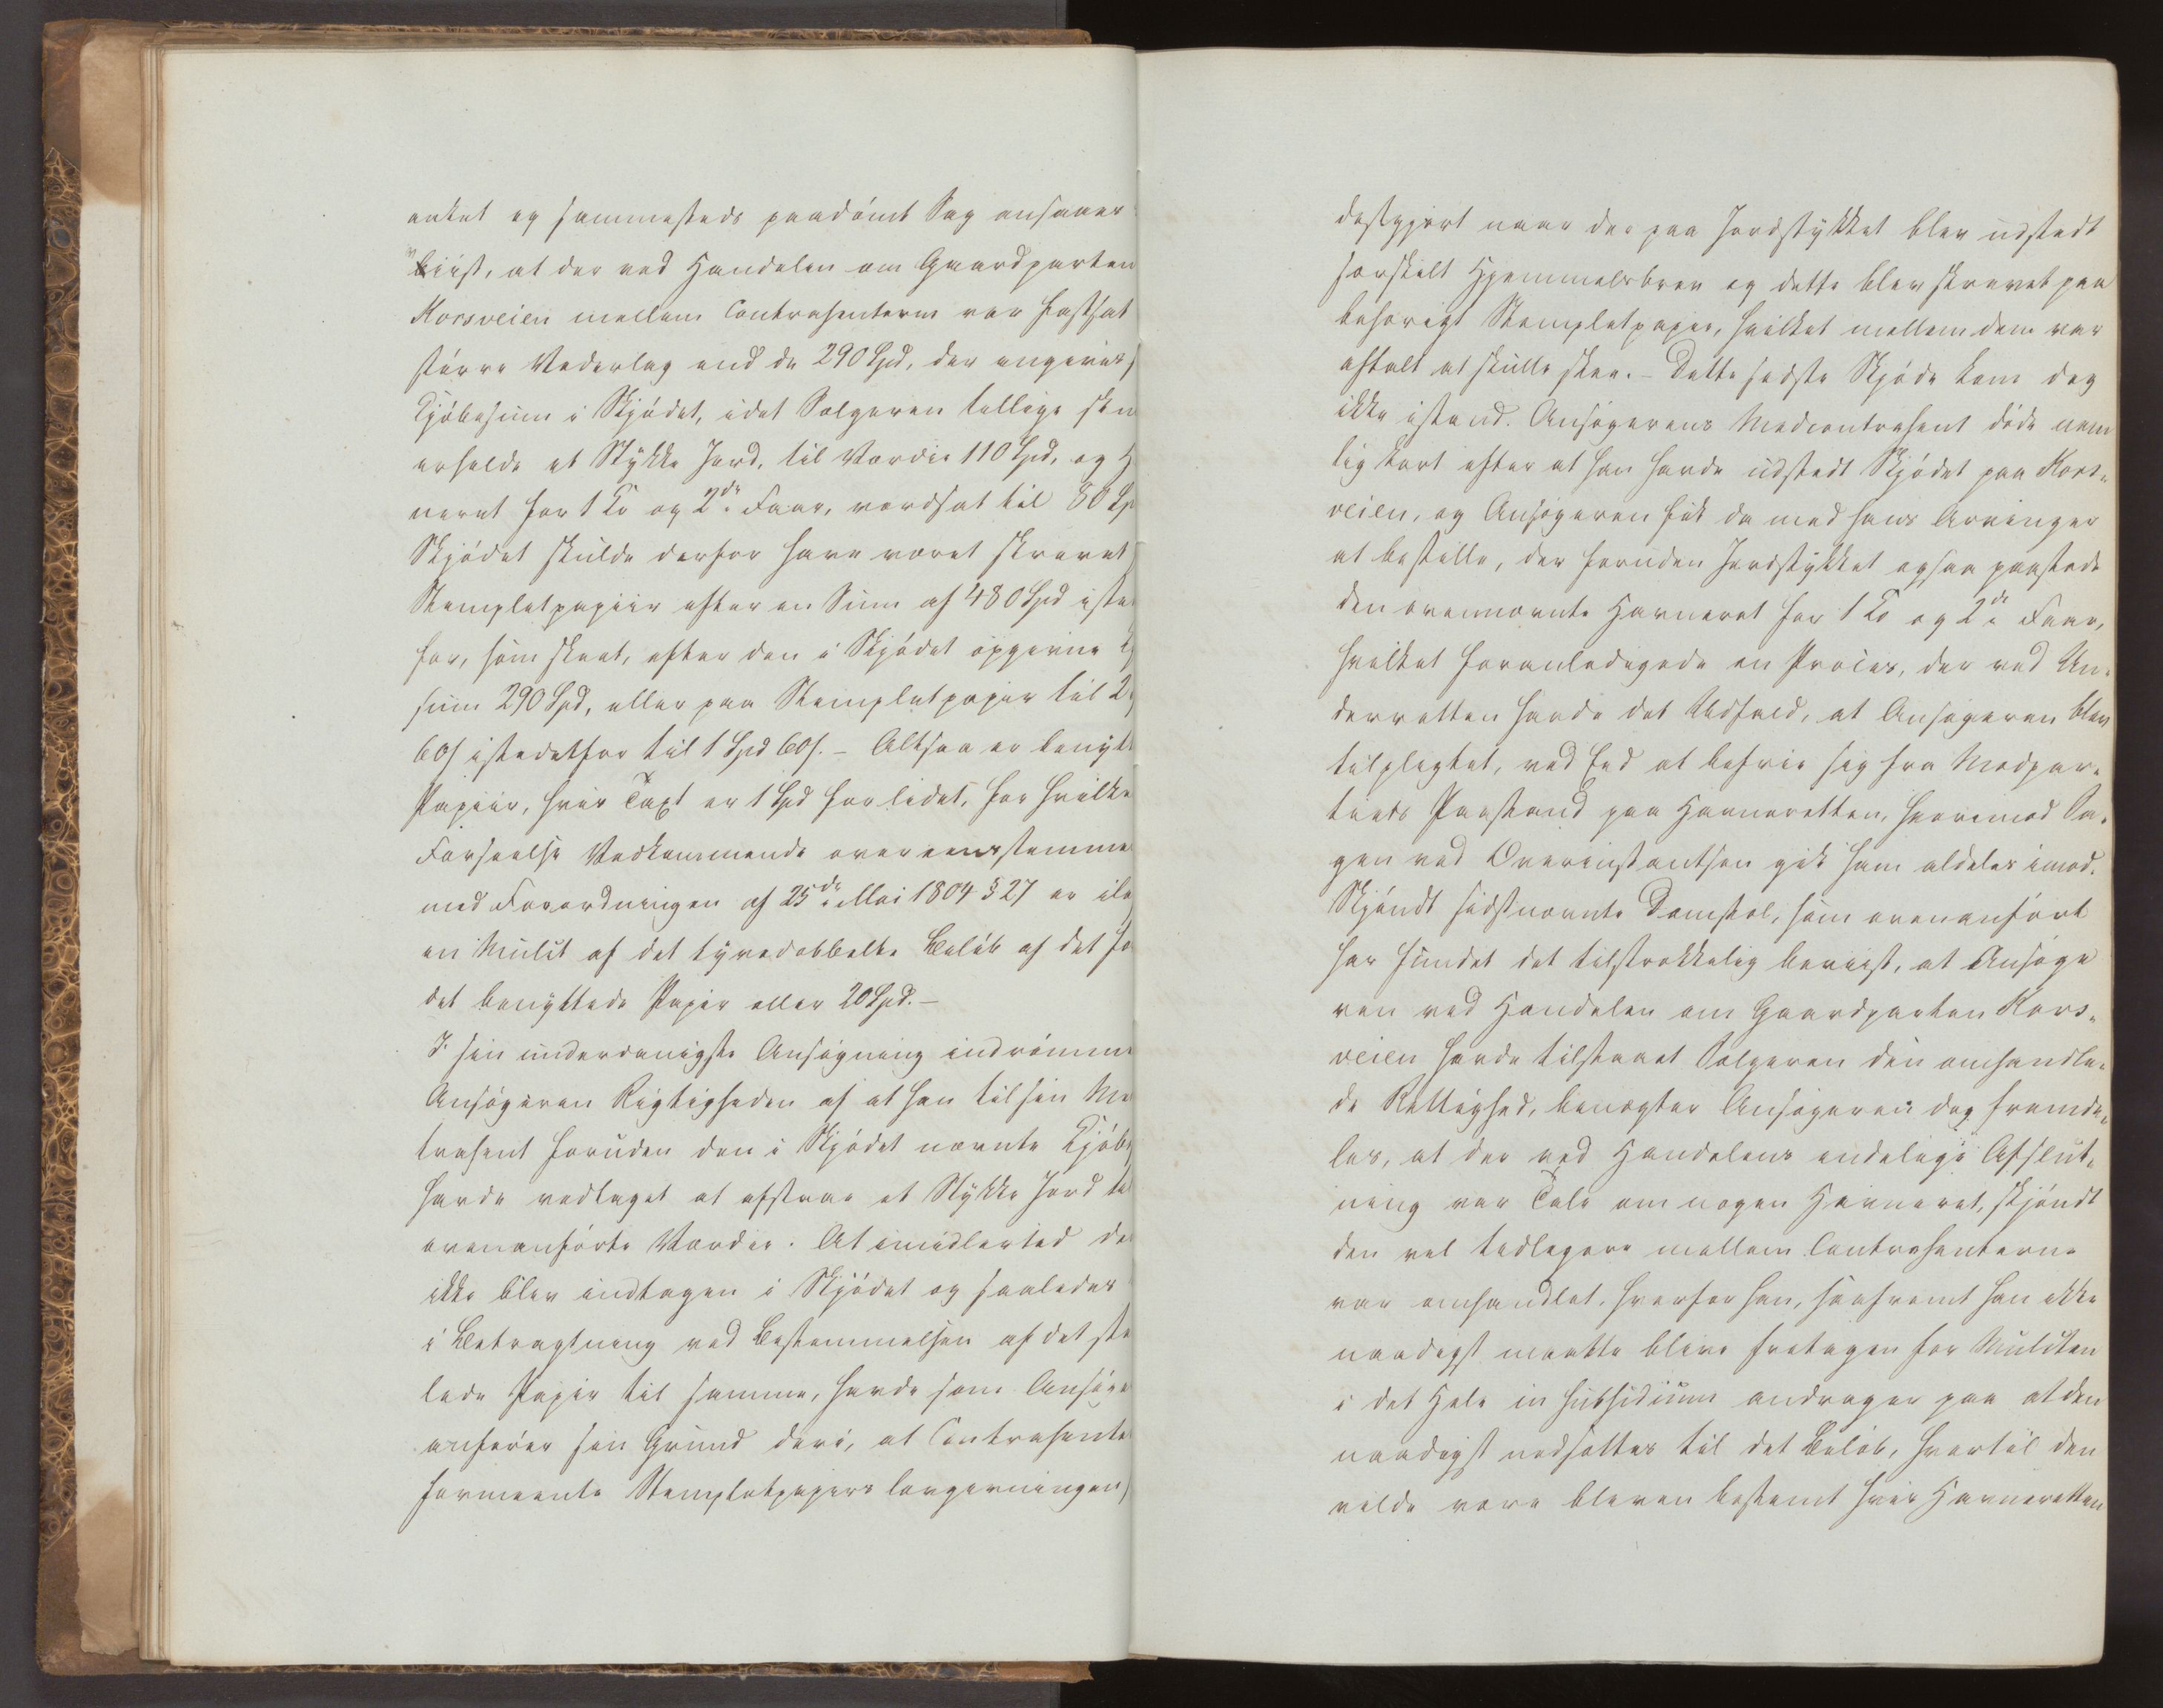 anket og sammesteds paadömt Sag ansaaes
beviist, at der ved Handelen om Gaardparten
Korsveien mellem Contrahenterne var fastsat
större Vederlag end de 290 Spd, der angives s
Kjöbesum i Skjödet, idet Sælgeren tillige sku
erholde et Stykke Jord, til Værdie 110 Spd, og H
neret for 1 Ko og 2de Faar, værdsat til 80 Sp
Skjödet skulde derfor have været skrevet
Stemplet papiir efter en Sum af 480 Spd iste
for, som skeet, efter den i Skjödet opgivne K
sum 290 Spd, eller paa Stemplet papir til 2
60s istedetfor til 1 Spd 60s. – Altsaa er benytt
Papiir, hvis Taxt er 1 Spd for lidet, for hvilke
Forseelse Vedkommende overeensstemme
med Forordningen af 25de Mai 1804 § 27 er ilg
en Mulct af det tyvedobbelte Belöb af det fo
det benyttede Papir eller 20 Spd. –
I sin underdanigste Ansögning indrömme
Ansögeren Rigtigheden af at han til sin Me
trahent foruden den i Skjödet nævnte Kjöbe
havde vedtaget at afstaae et Stykke Jord til
ovenanförte Værdie. At imidlertid de
ikke blev indtagen i Skjödet og saaledes
i Betragtning ved Bestemmelsen af det ste
lede Papir til samme, havde som Ansöge
anförer sin Grund deri, at Contrahente
formeente Stemplet papirs lovgivningen
destgjort naar der paa Jordstykket blev udstedt
særskilt Hjemmelsbrev og dette blev skrevet paa
behörigt Stemplet papir, hvilket mellem dem var
aftalt at skulle skee. – Dette sidste Skjöde kom dog
ikke istand. Ansögerens Medcontrahent döde nem
lig kort efter at han havde udstedt Skjödet paa Kors-
veien, og Ansögeren fik da med hans Arvinger
at bestille, der foruden Jordstykket ogsaa paastode
den ovennævnte Havneret for 1 Ko og 2de Faar,
hvilket foranledigede en Proces, der ved Un-
derretten havde det Udfald, at Ansögeren blev
tilpligtet, ved Eed at befrie sig fra Modpar-
tiets Paastand paa Havneretten, hvorimod Sa-
gen ved Overinstantsen gik ham aldeles imod.
Skjöndt sidstnævnte Domstol, som ovenanfört
har fundet det tilstrækkelig beviist, at Ansöge
ren ved Handelen om Gaardparten Kors-
veien havde tilstaaet Sælgeren den omhandle-
de Rettighed, benægter Ansögeren dog fremde-
les, at der ved Handelens endelige Afslut-
ning var Tale om nogen Havneret, skjöndt
den vel tidligere mellem Contrahenterne
var omhandlet, hvorfor han, saafremt han ikke
naadigst maatte blive fritagen for Mulcten
i det Hele in subsidium andrager paa at den
naadigst nedsættes til det Belöb, hvortil den
vilde være bleven bestemt hvis Havneretten